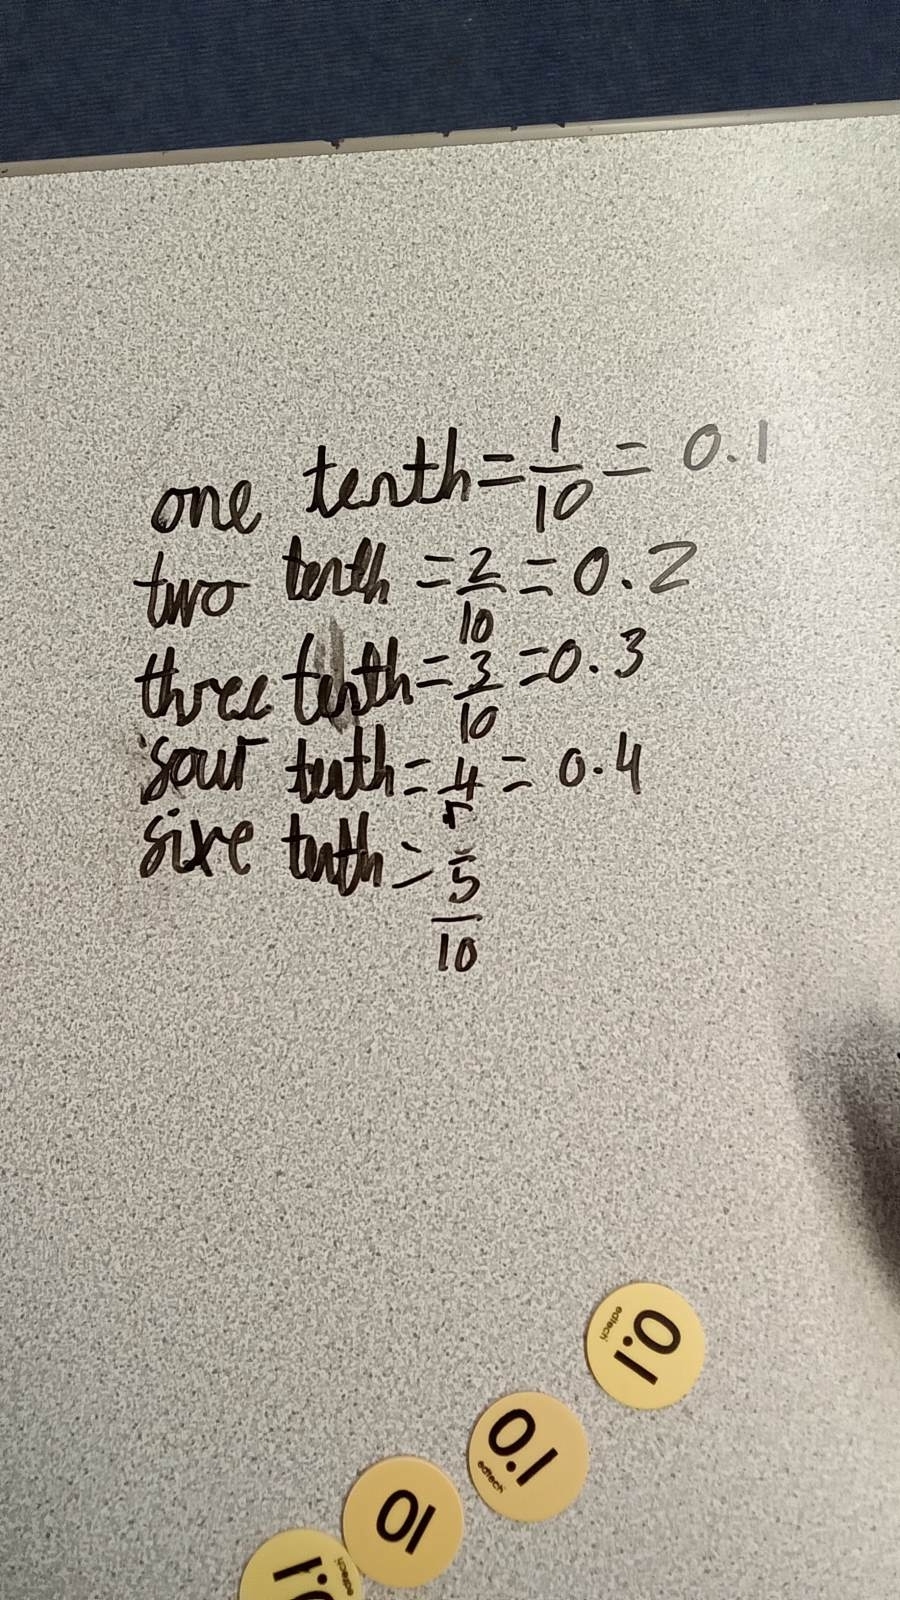 one tenth = 1/10 = 0.1
two tenth = 2/10 = 0.2
three tenth = 3/10 = 0.3
sour tenth = 4/ = 0.4
sixe tenth = 5/10
0.1
edtech
0.1
edtech
10
0.1
edtech